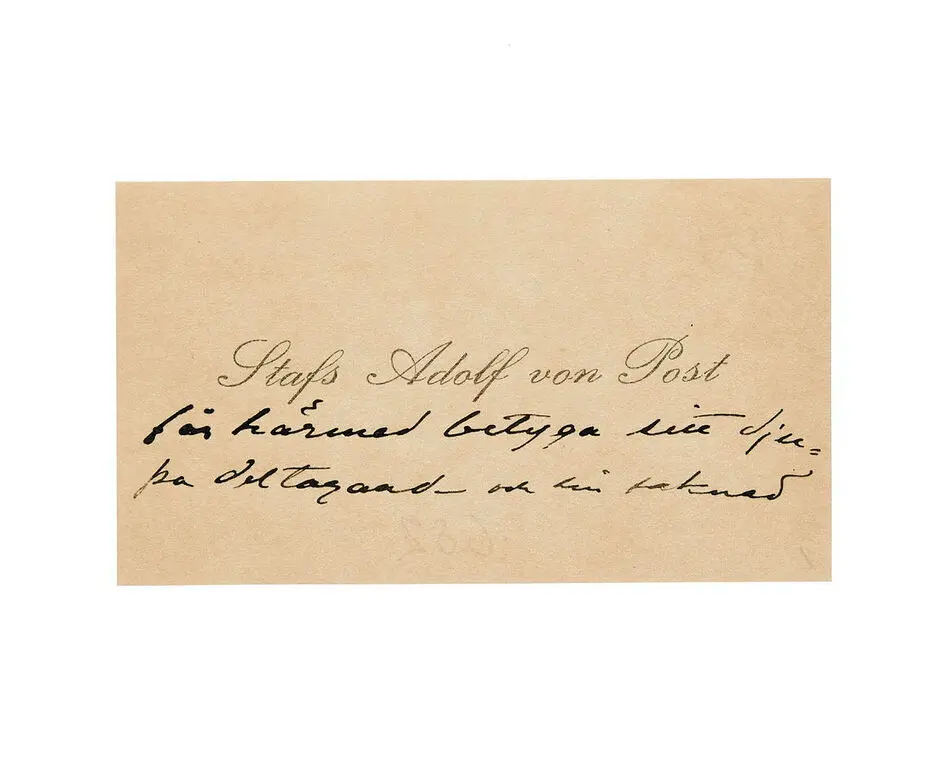 Stafs Adolf von Post
får härmed betyga sitt dju=
pa deltagand och sin saknad